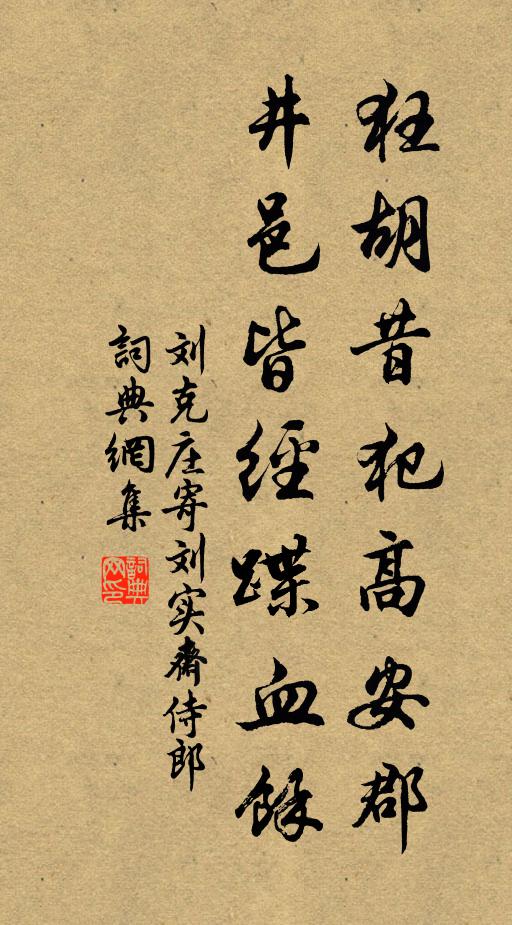 狂胡昔犯高安郡
井邑皆經蹀血餘
刘克庄寄刘实斋侍郎
詞典網集
詞典网印